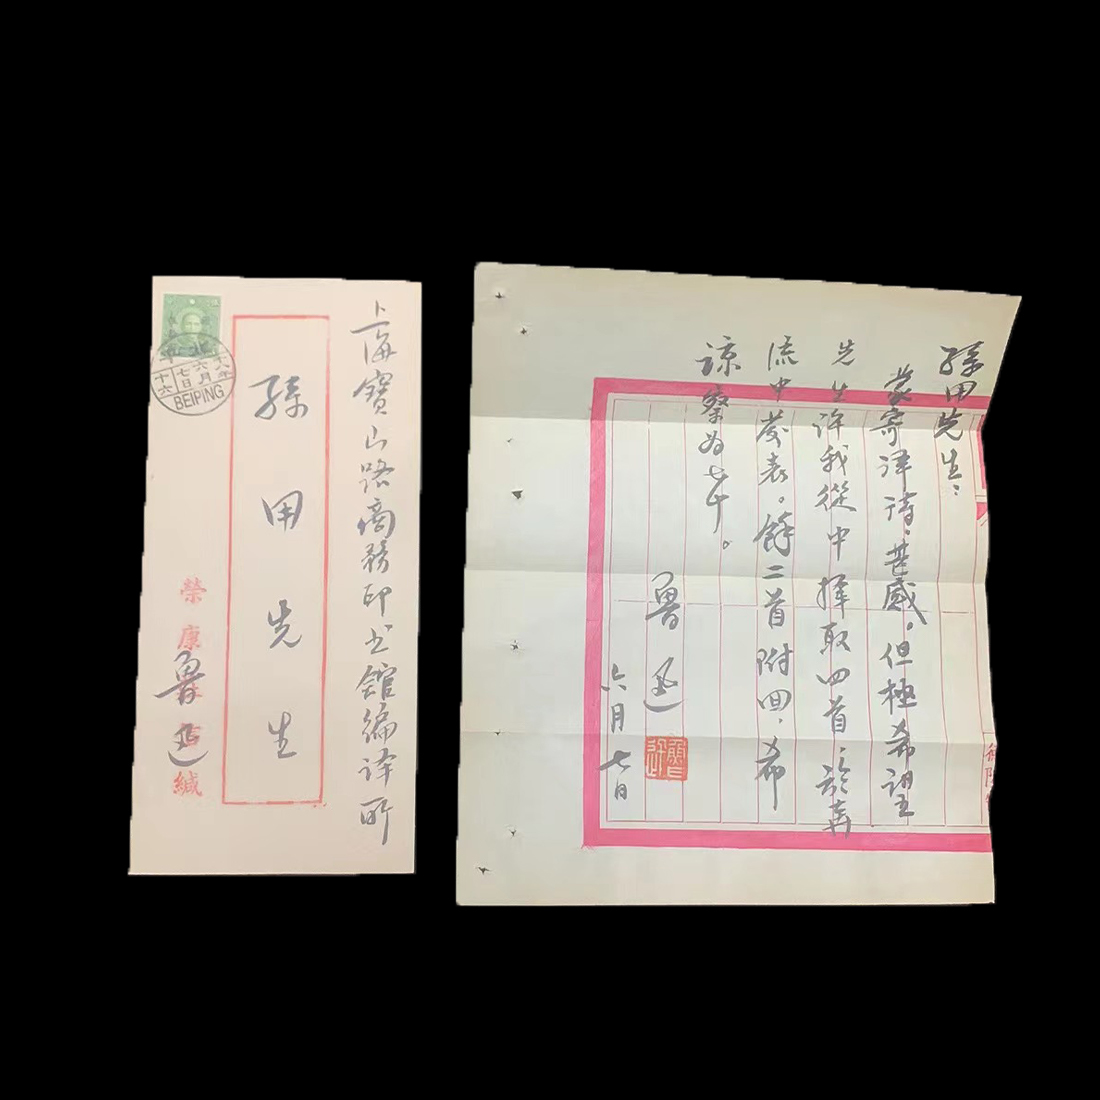 上海寶山路商務印书館編译所
孫用先生
榮康
緘
魯迅
北平
十八年
六月
七日
十六
BEIPING
孫用先生：
蒙寄译诗，甚感。但極希望
先生许我從中擇取四首，於奔
流中發表。餘二首附回，希
谅察为幸。
魯迅
六月七日